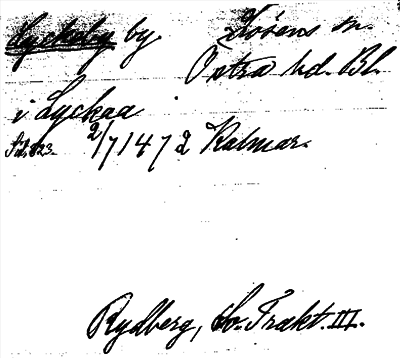 Lyckeby by. Lösens sn.
Östra hd. Bl.
i Lyckaa
2/7 1472 Kalmar.
Rydberg, Sv. Trakt. III.